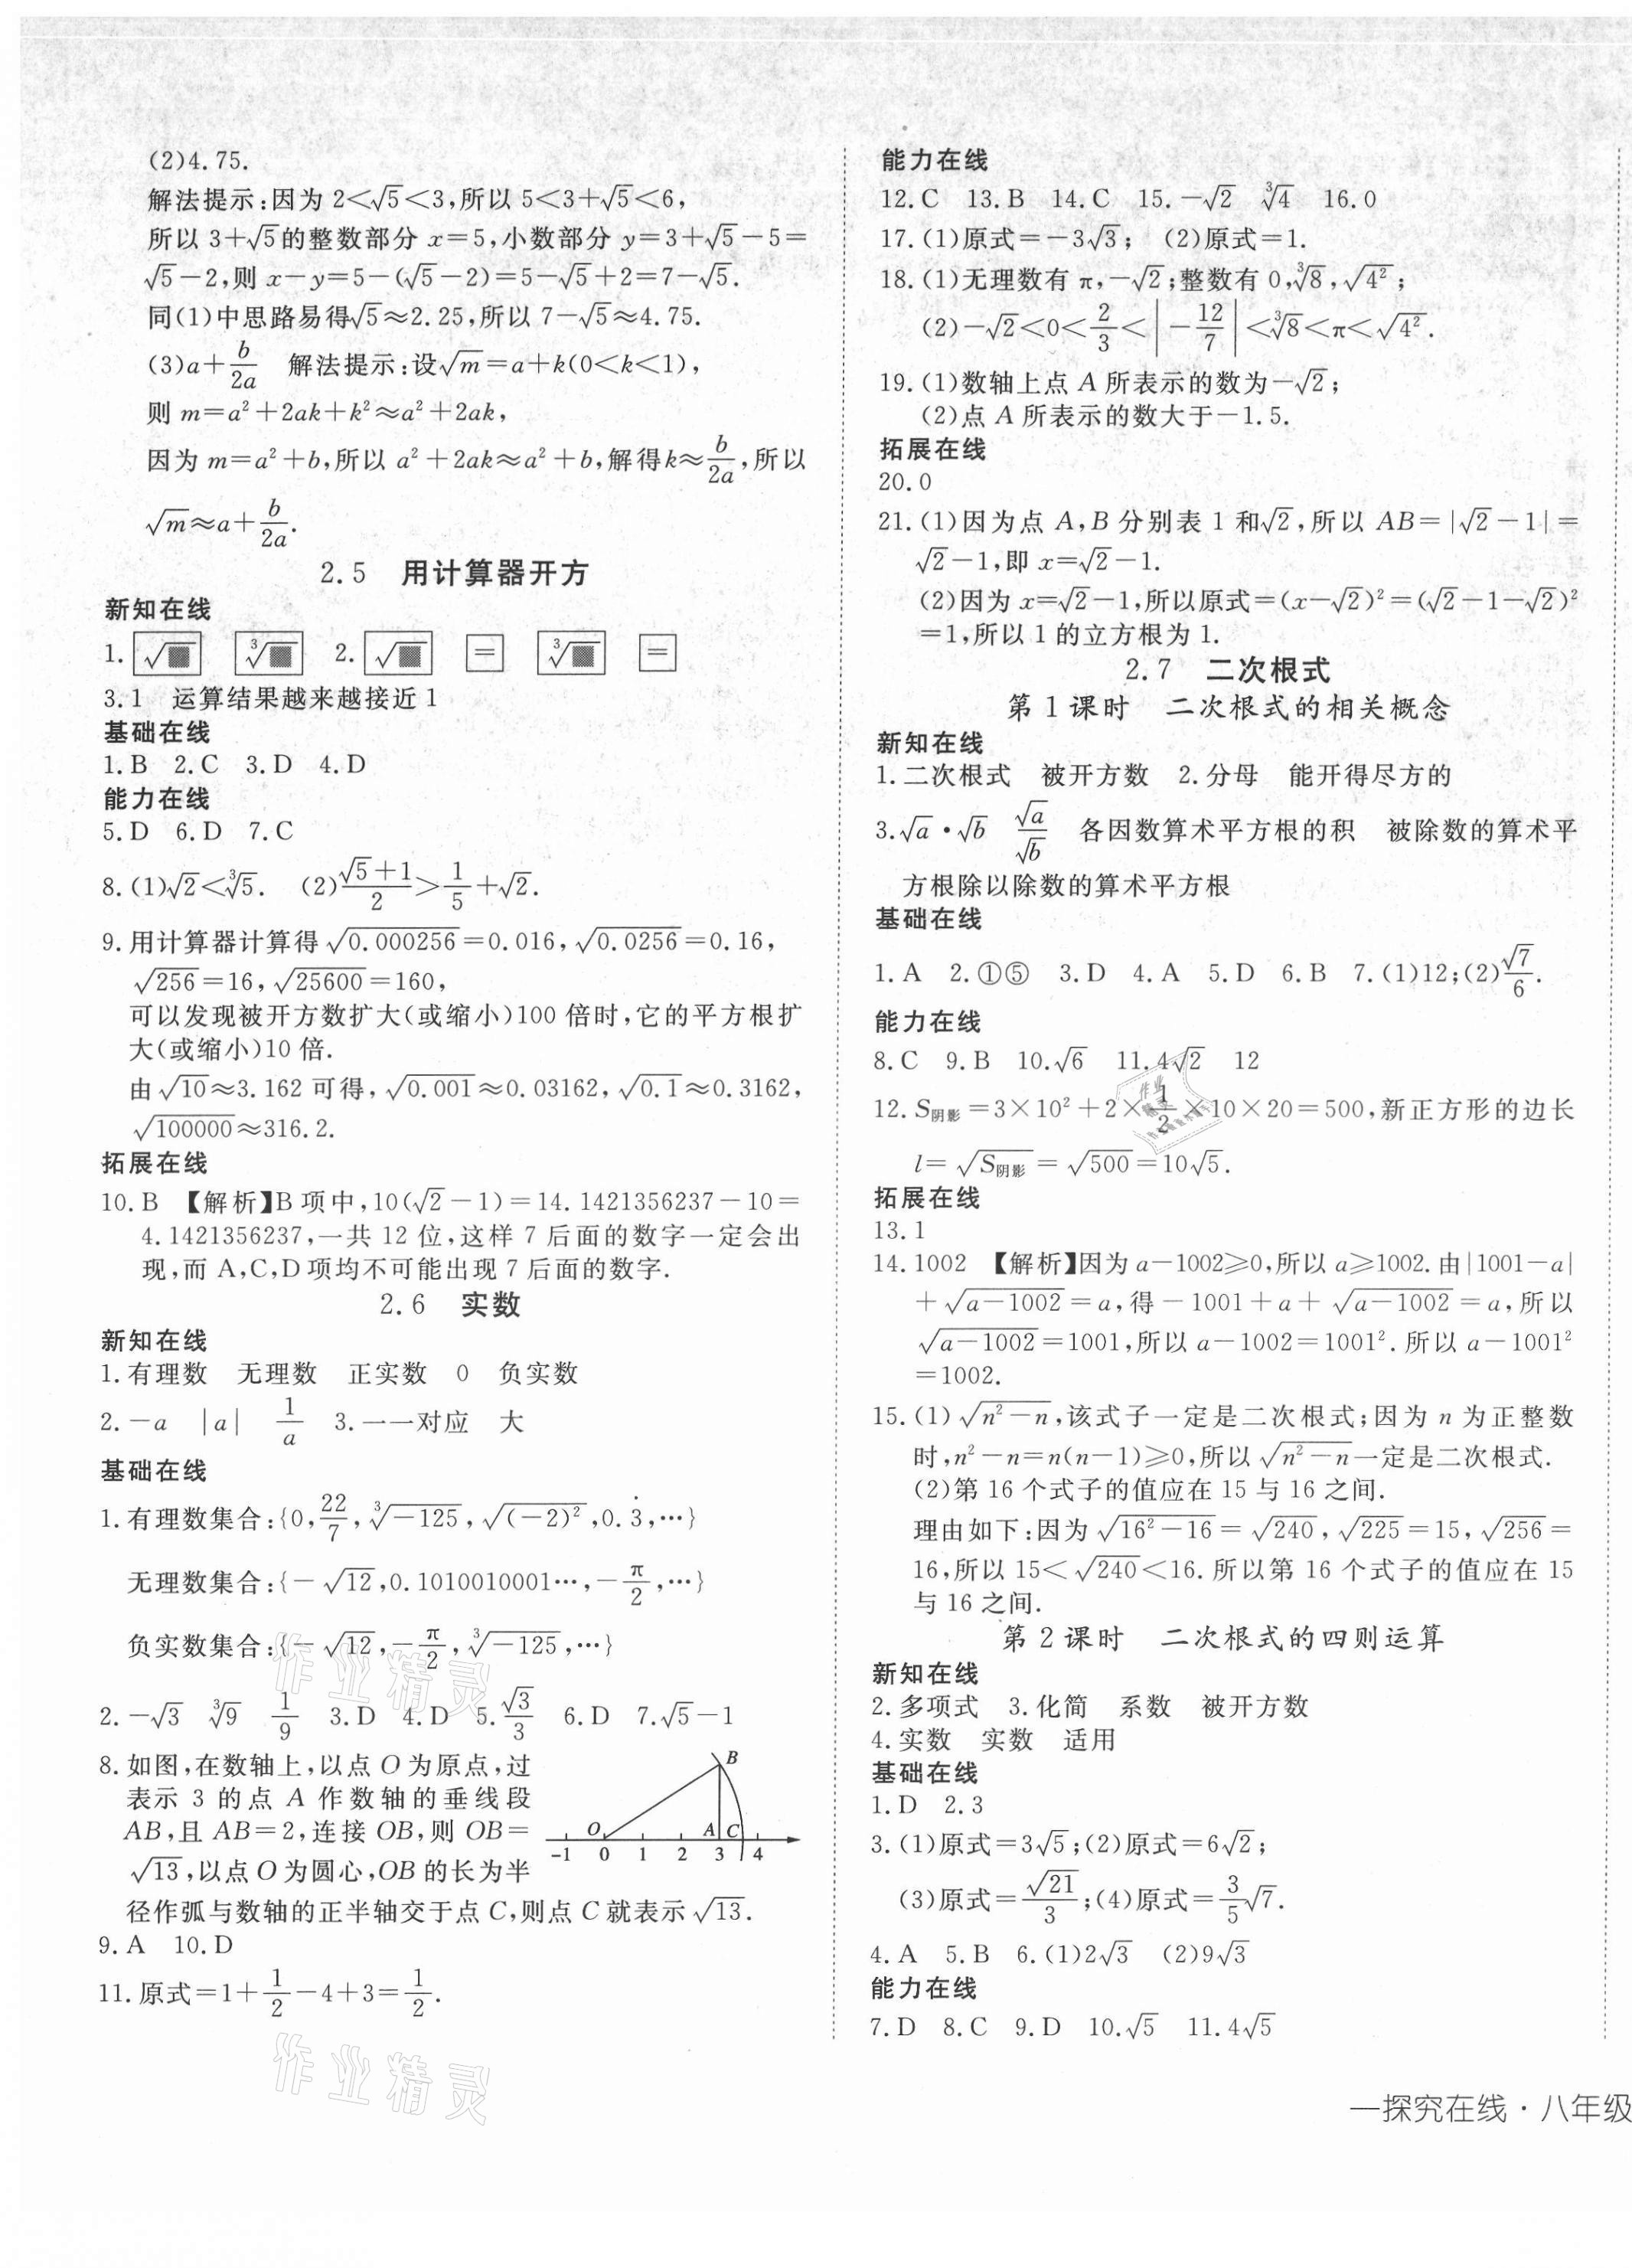 (2)4.75.
解法提示:因为 2<√5<3,所以 5<3+√5<6,
所以 3+√5的整数部分 x=5,小数部分 y=3+√5-5=
√5-2,则 x-y=5-(√5-2)=5-√5+2=7-√5.
同(1)中思路易得√5≈2.25,所以 7-√5≈4.75.
(3)a+b/2a 解法提示:设√m=a+k(0<k<1),
则 m=a²+2ak+k²≈a²+2ak,
因为 m=a²+b,所以 a²+2ak≈a²+b,解得k≈b/2a,所以
√m≈a+b/2a.
2.5 用计算器开方
新知在线
1. √■ ³√■ 2. √■ = ³√■ =
3.1 运算结果越来越接近 1
基础在线
1.B 2.C 3.D 4.D
能力在线
5.D 6.D 7.C
8.(1)√2<³√5. (2)(√5+1)/2>1/5+√2.
9.用计算器计算得 √0.000256=0.016,√0.0256=0.16,
√256=16,√25600=160,
可以发现被开方数扩大(或缩小)100 倍时,它的平方根扩
大(或缩小)10 倍.
由√10≈3.162 可得,√0.001≈0.03162,√0.1≈0.3162,
√100000≈316.2.
拓展在线
10.B 【解析】B 项中,10(√2-1)=14.1421356237-10=
4.1421356237,一共 12 位,这样 7 后面的数字一定会出
现,而 A,C,D 项均不可能出现 7 后面的数字.
2.6 实数
新知在线
1.有理数 无理数 正实数 0 负实数
2.-a |a| 1/a 3.一一对应 大
基础在线
1.有理数集合:{0,22/7,³√-125,√(-2)²,0.3̇,…}
无理数集合:{-√12,0.1010010001…,-π/2,…}
负实数集合:{-√12,-π/2,³√-125,…}
2.-√3 ³√9 1/9 3.D 4.D 5.√3/3 6.D 7.√5-1
8.如图,在数轴上,以点 O 为原点,过
表示 3 的点 A 作数轴的垂线段
AB,且 AB=2,连接 OB,则 OB=
√13,以点 O 为圆心,OB 的长为半
径作弧与数轴的正半轴交于点 C,则点 C 就表示 √13.
B
O A C
-1 0 1 2 3 4
9.A 10.D
11.原式=1+1/2-4+3=1/2.
能力在线
12.C 13.B 14.C 15.-√2 ³√4 16.0
17.(1)原式=-3√3; (2)原式=1.
18.(1)无理数有 π,-√2;整数有 0,³√8,√4²;
(2)-√2<0<2/3<|-12/7|<³√8<π<√4².
19.(1)数轴上点 A 所表示的数为-√2;
(2)点 A 所表示的数大于-1.5.
拓展在线
20.0
21.(1)因为点 A,B 分别表 1 和√2,所以 AB=|√2-1|=
√2-1,即 x=√2-1.
(2)因为 x=√2-1,所以原式=(x-√2)²=(√2-1-√2)²
=1,所以 1 的立方根为 1.
2.7 二次根式
第 1 课时 二次根式的相关概念
新知在线
1.二次根式 被开方数 2.分母 能开得尽方的
3.√a·√b √a/√b 各因数算术平方根的积 被除数的算术平
方根除以除数的算术平方根
基础在线
1.A 2.①⑤ 3.D 4.A 5.D 6.B 7.(1)12;(2)√7/6.
能力在线
8.C 9.B 10.√6 11.4√2 12
12.S阴影=3×10²+2×1/2×10×20=500,新正方形的边长
l=√S阴影=√500=10√5.
拓展在线
13.1
14.1002 【解析】因为 a-1002≥0,所以 a≥1002.由|1001-a|
+√a-1002=a,得-1001+a+√a-1002=a,所以
√a-1002=1001,所以 a-1002=1001².所以 a-1001²
=1002.
15.(1)√n²-n,该式子一定是二次根式;因为 n 为正整数
时,n²-n=n(n-1)≥0,所以√n²-n一定是二次根式.
(2)第 16 个式子的值应在 15 与 16 之间.
理由如下:因为√16²-16=√240,√225=15,√256=
16,所以 15<√240<16.所以第 16 个式子的值应在 15
与 16 之间.
第 2 课时 二次根式的四则运算
新知在线
2.多项式 3.化简 系数 被开方数
4.实数 实数 适用
基础在线
1.D 2.3
3.(1)原式=3√5;(2)原式=6√2;
(3)原式=√21/3;(4)原式=3/5√7.
4.A 5.B 6.(1)2√3 (2)9√3
能力在线
7.D 8.C 9.D 10.√5 11.4√5
—探究在线·八年级
作业精灵
作业精灵